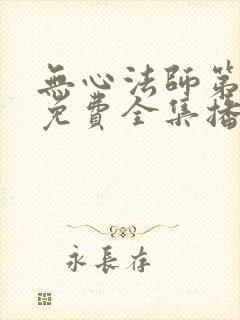 無心法師第
免費全集播
永長存